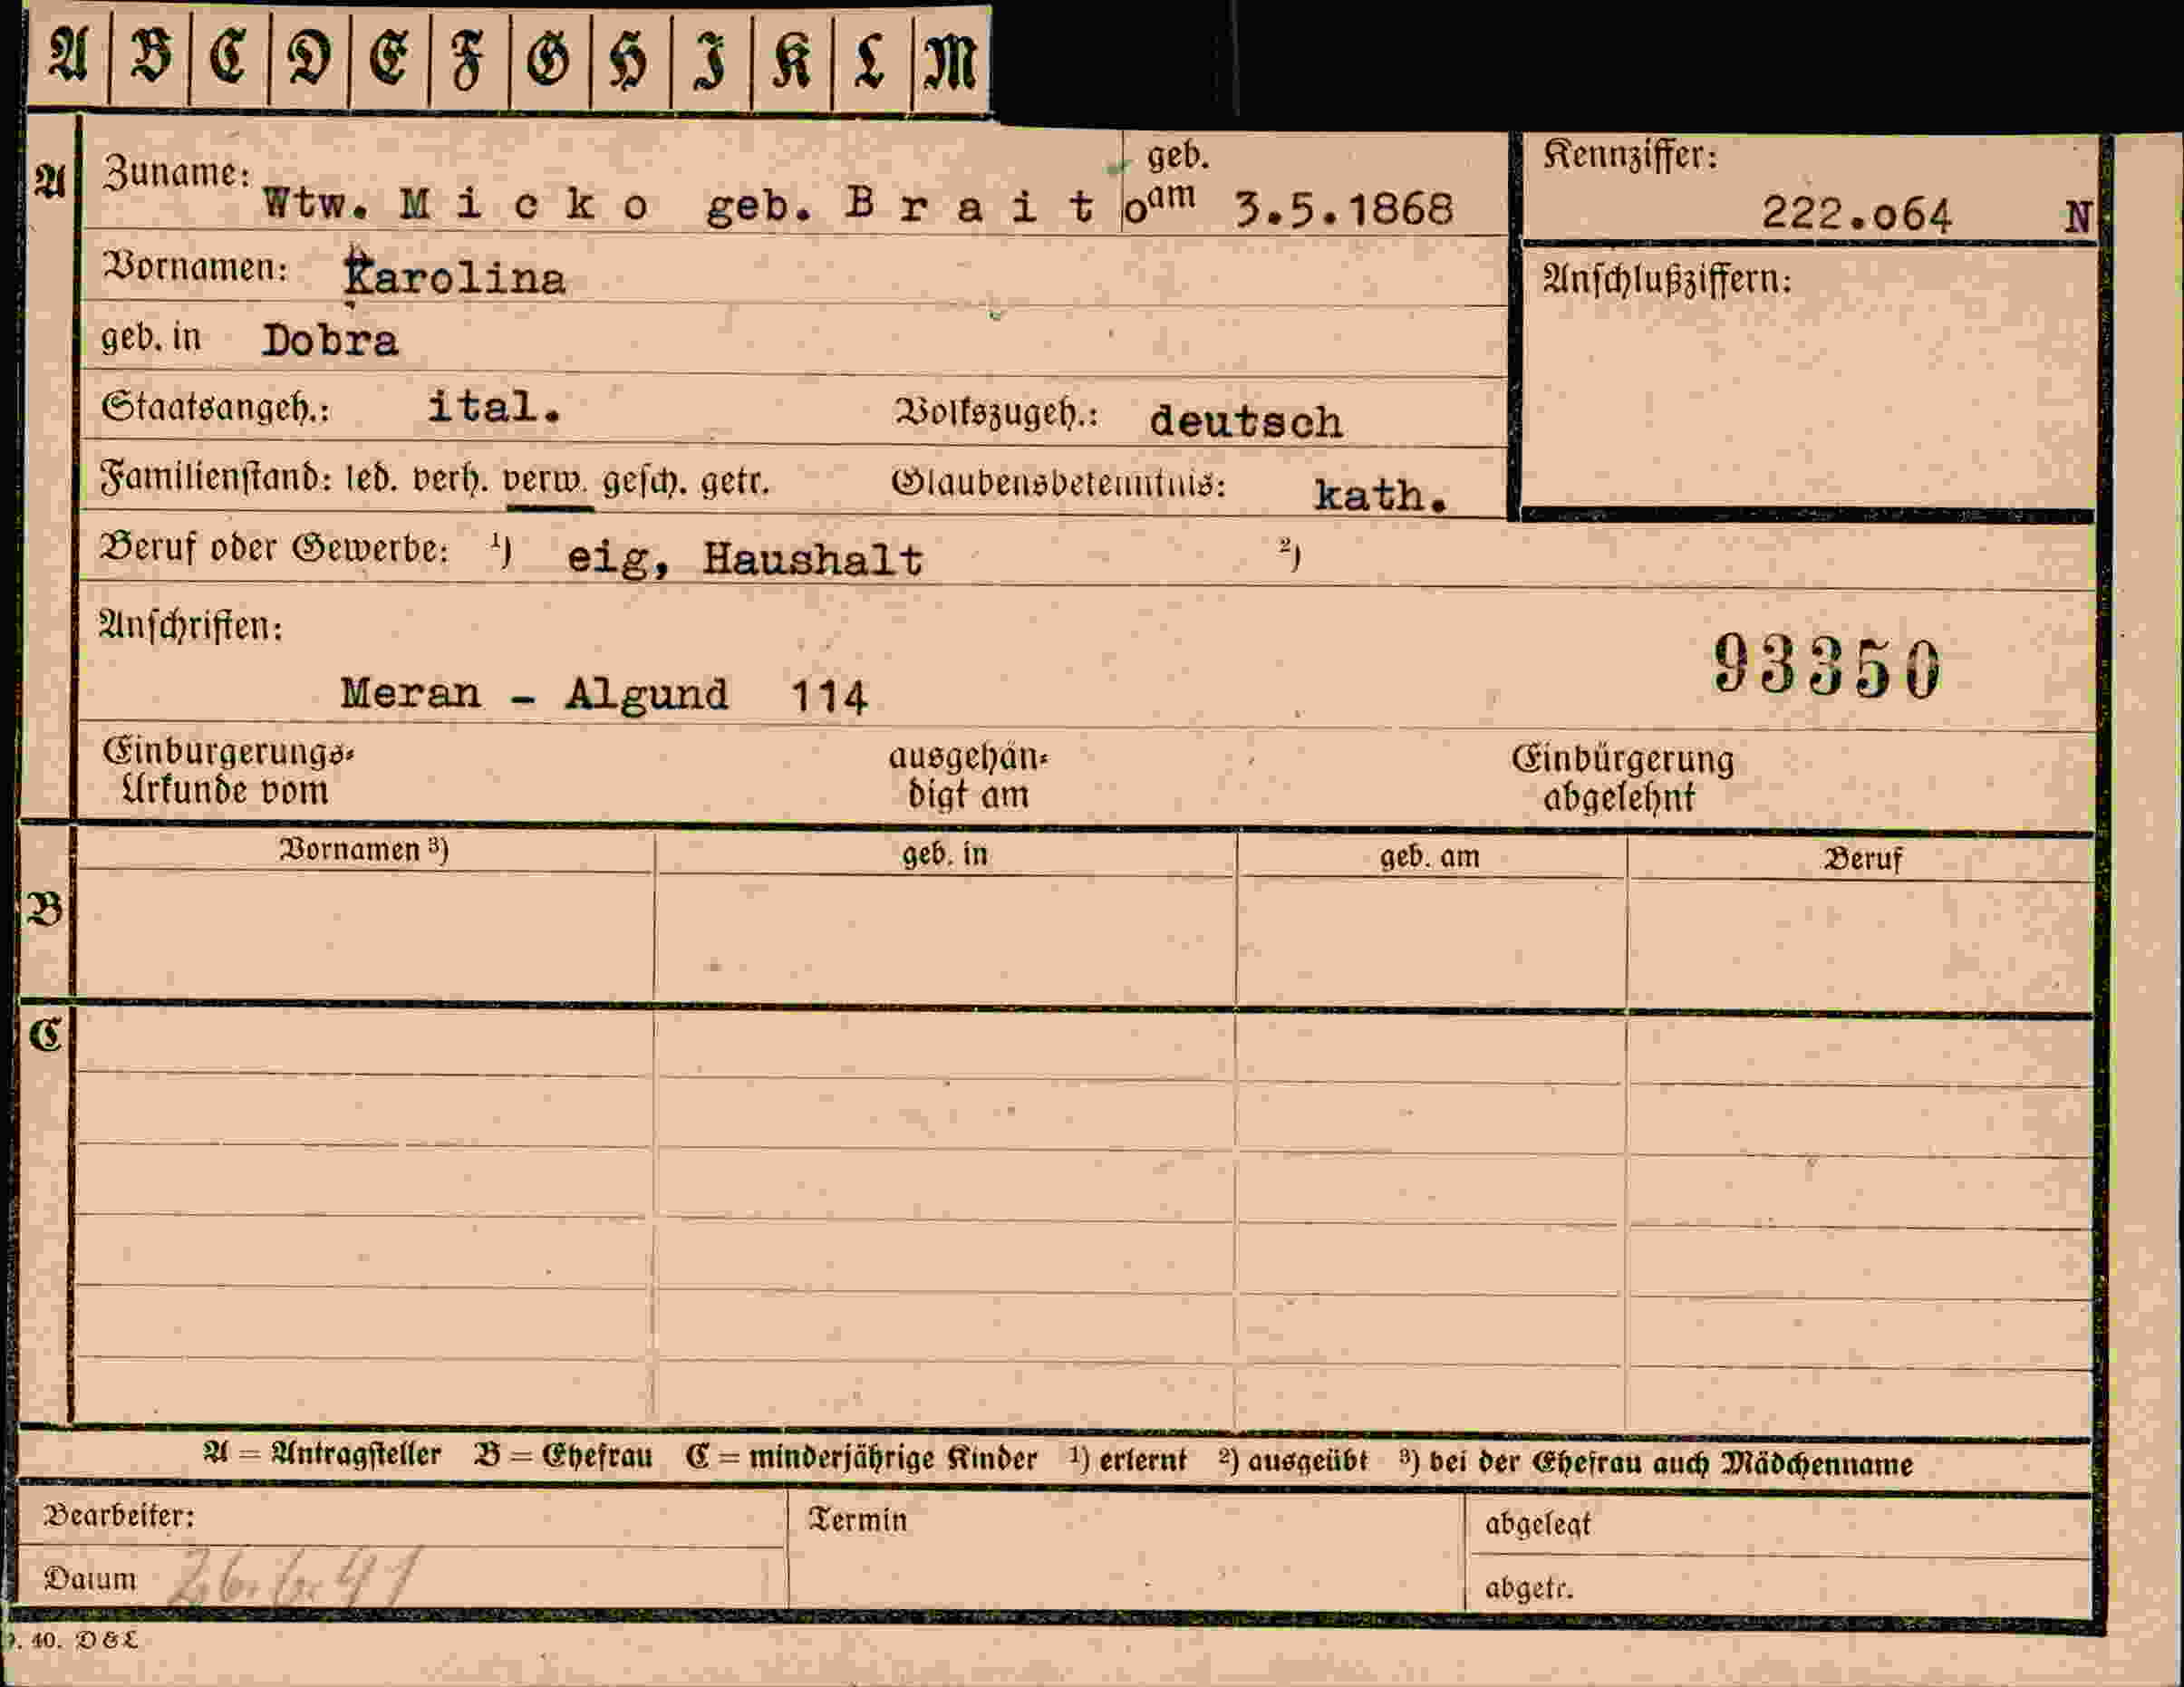 A B C D E F G H I K L M
A Zuname: Wtw. M i c k o geb. B r a i t o geb. am 3.5.1868
Kennziffer: 222.o64 N
Vornamen: Karolina
Anschlußziffern:
geb. in Dobra
Staatsangeh.: ital. Volkszugeh.: deutsch
Familienstand: led. verh. verw. gesch. getr. Glaubensbekenntnis: kath.
Beruf oder Gewerbe: ¹) eig, Haushalt ²)
Anschriften:
93350
Meran - Algund 114
Einbürgerungs- ausgehän- Einbürgerung
Urkunde vom digt am abgelehnt
Vornamen ³) geb. in geb. am Beruf
B
C
A = Antragsteller B = Ehefrau C = minderjährige Kinder ¹) erlernt ²) ausgeübt ³) bei der Ehefrau auch Mädchenname
Bearbeiter: Termin abgelegt
Datum 26.6.41 abgetr.
. 40. D & L